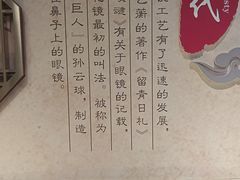 代
sty
说工艺有了迅速的发展,
艺蘅的著作《留青日札》
叆叇》有关于眼镜的记载,
镜最初的叫法。被称为
巨人"的孙云球,制造
在鼻子上的眼镜。